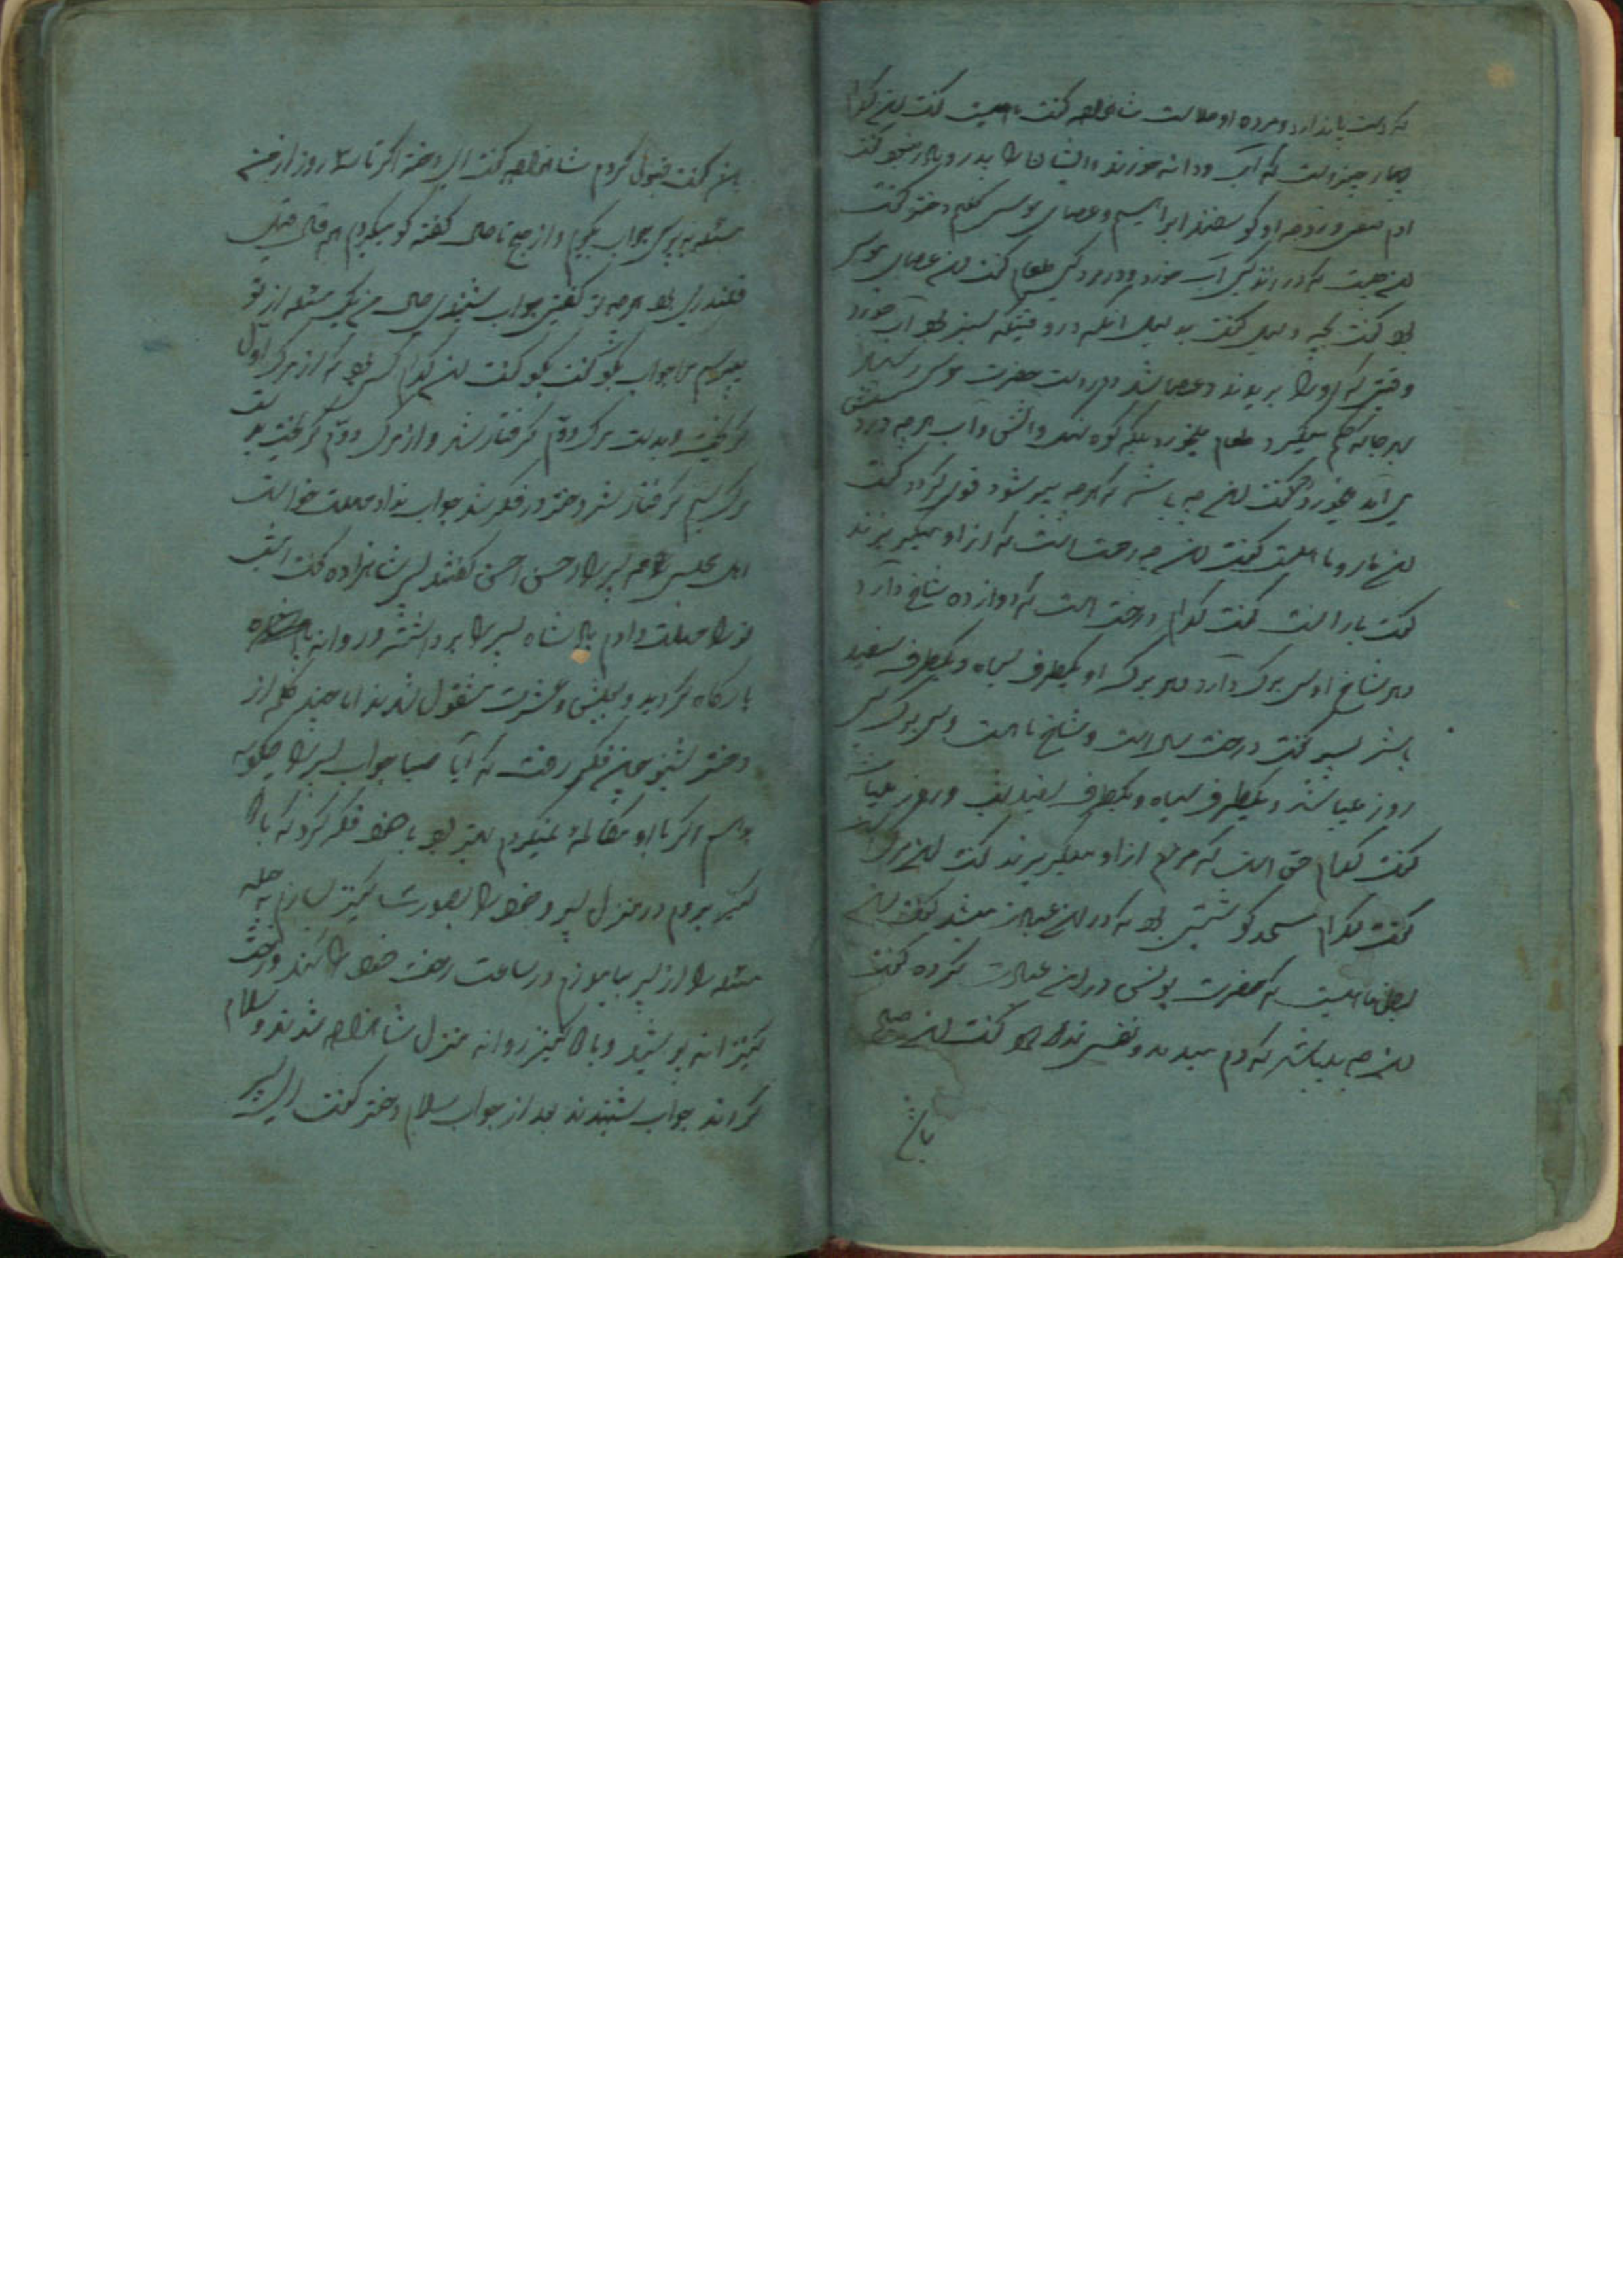 که دست پا ندارد و مرده او حلالست شاهزاده گفت ماهیست گفت این کدام
چهار چیز است که آب و دانه خورند و ایشان را پدر و مادر نیست گفت
ادم صفی و زوجه او گوسفند ابراهیم و عصای موسی کلیم دختر گفت
این چیست که در زندگی آب خورد و در مردگی طعام گفت این عصای موسی
بود گفت بچه دلیل گفت بدلیل آنکه در وقتیکه سبز بود آب خورد
وقتی که او را بریدند و عصا شد در دست حضرت موسی
بهر جا که حکم میکرد طعام میخورد بلکه کوه سنگ و آتش و آب هر چه در
می آمد میخورد گفت این چه باشد که هر چه پیر شود قوی گردد گفت
این مار و ماهیست گفت این چه رحمت است که از او میگریزند
گفت باران است گفت کدام درخت است که دوازده شاخ دارد
و هر شاخ او سی برگ دارد و هر برگ او یکطرف سیاه و یکطرف سفید
باشد پسر گفت درخت سال است و شاخ ماهست و سی برگ سی
روز میباشند و یکطرف سیاه و یکطرف سفید شب و روز میباشد
گفت کدام حق است که مردم از او میگریزند گفت این مرگ
گفت کدام مسجد گوشتین بود که در این عبادت میشد گفت این
بطن ماهیست که حضرت یونس در این عبادت کرده گفت
این چه میباشد که دم میدهد و نفس ندارد گفت این صبح
باشد
این گفت قبول کردم شاهزاده گفت ای دختر اگر تا ۳ روز از من
مسئله بپرسی جواب بگویم و از صبح تا حال گفته گو میکردیم
هر چه تو گفتی جواب شنیدی حال من یک مسئله از تو
میپرسم مرا جواب بگو گفت بگو گفت این کدام کس بود که از مرگ اول
گریخت و بدست مرگ دوم گرفتار شد و از مرگ دوم گریخت بدست
مرگ سیم گرفتار شد دختر در فکر شد جواب نداد مهلت خواست
اهل مجلس همه پسر را احسن احسن گفتند پس شاهزاده گفت امشب
تو را مهلت دادم پادشاه پسر را برداشته و روانه
بارگاه گردید و بعیش و عشرت مشغول شدند اما چند کلمه از
دختر بشنو بچه فکر رفت که آیا صبا جواب پسر را چگونه
بدهم اگر با او مکالمه نمیکردم بهتر بود با خود فکر کرد که با
کنیز بروم در منزل پسر و خود را بصورت کنیز سازم به حیله
مسئله را از پسر بیاموزم در ساعت رخت خود را کند و رخت
کنیزانه پوشید و با کنیز روانه منزل شاهزاده شدند و سلام
کردند جواب شنیدند بعد از جواب سلام دختر گفت ای پسر